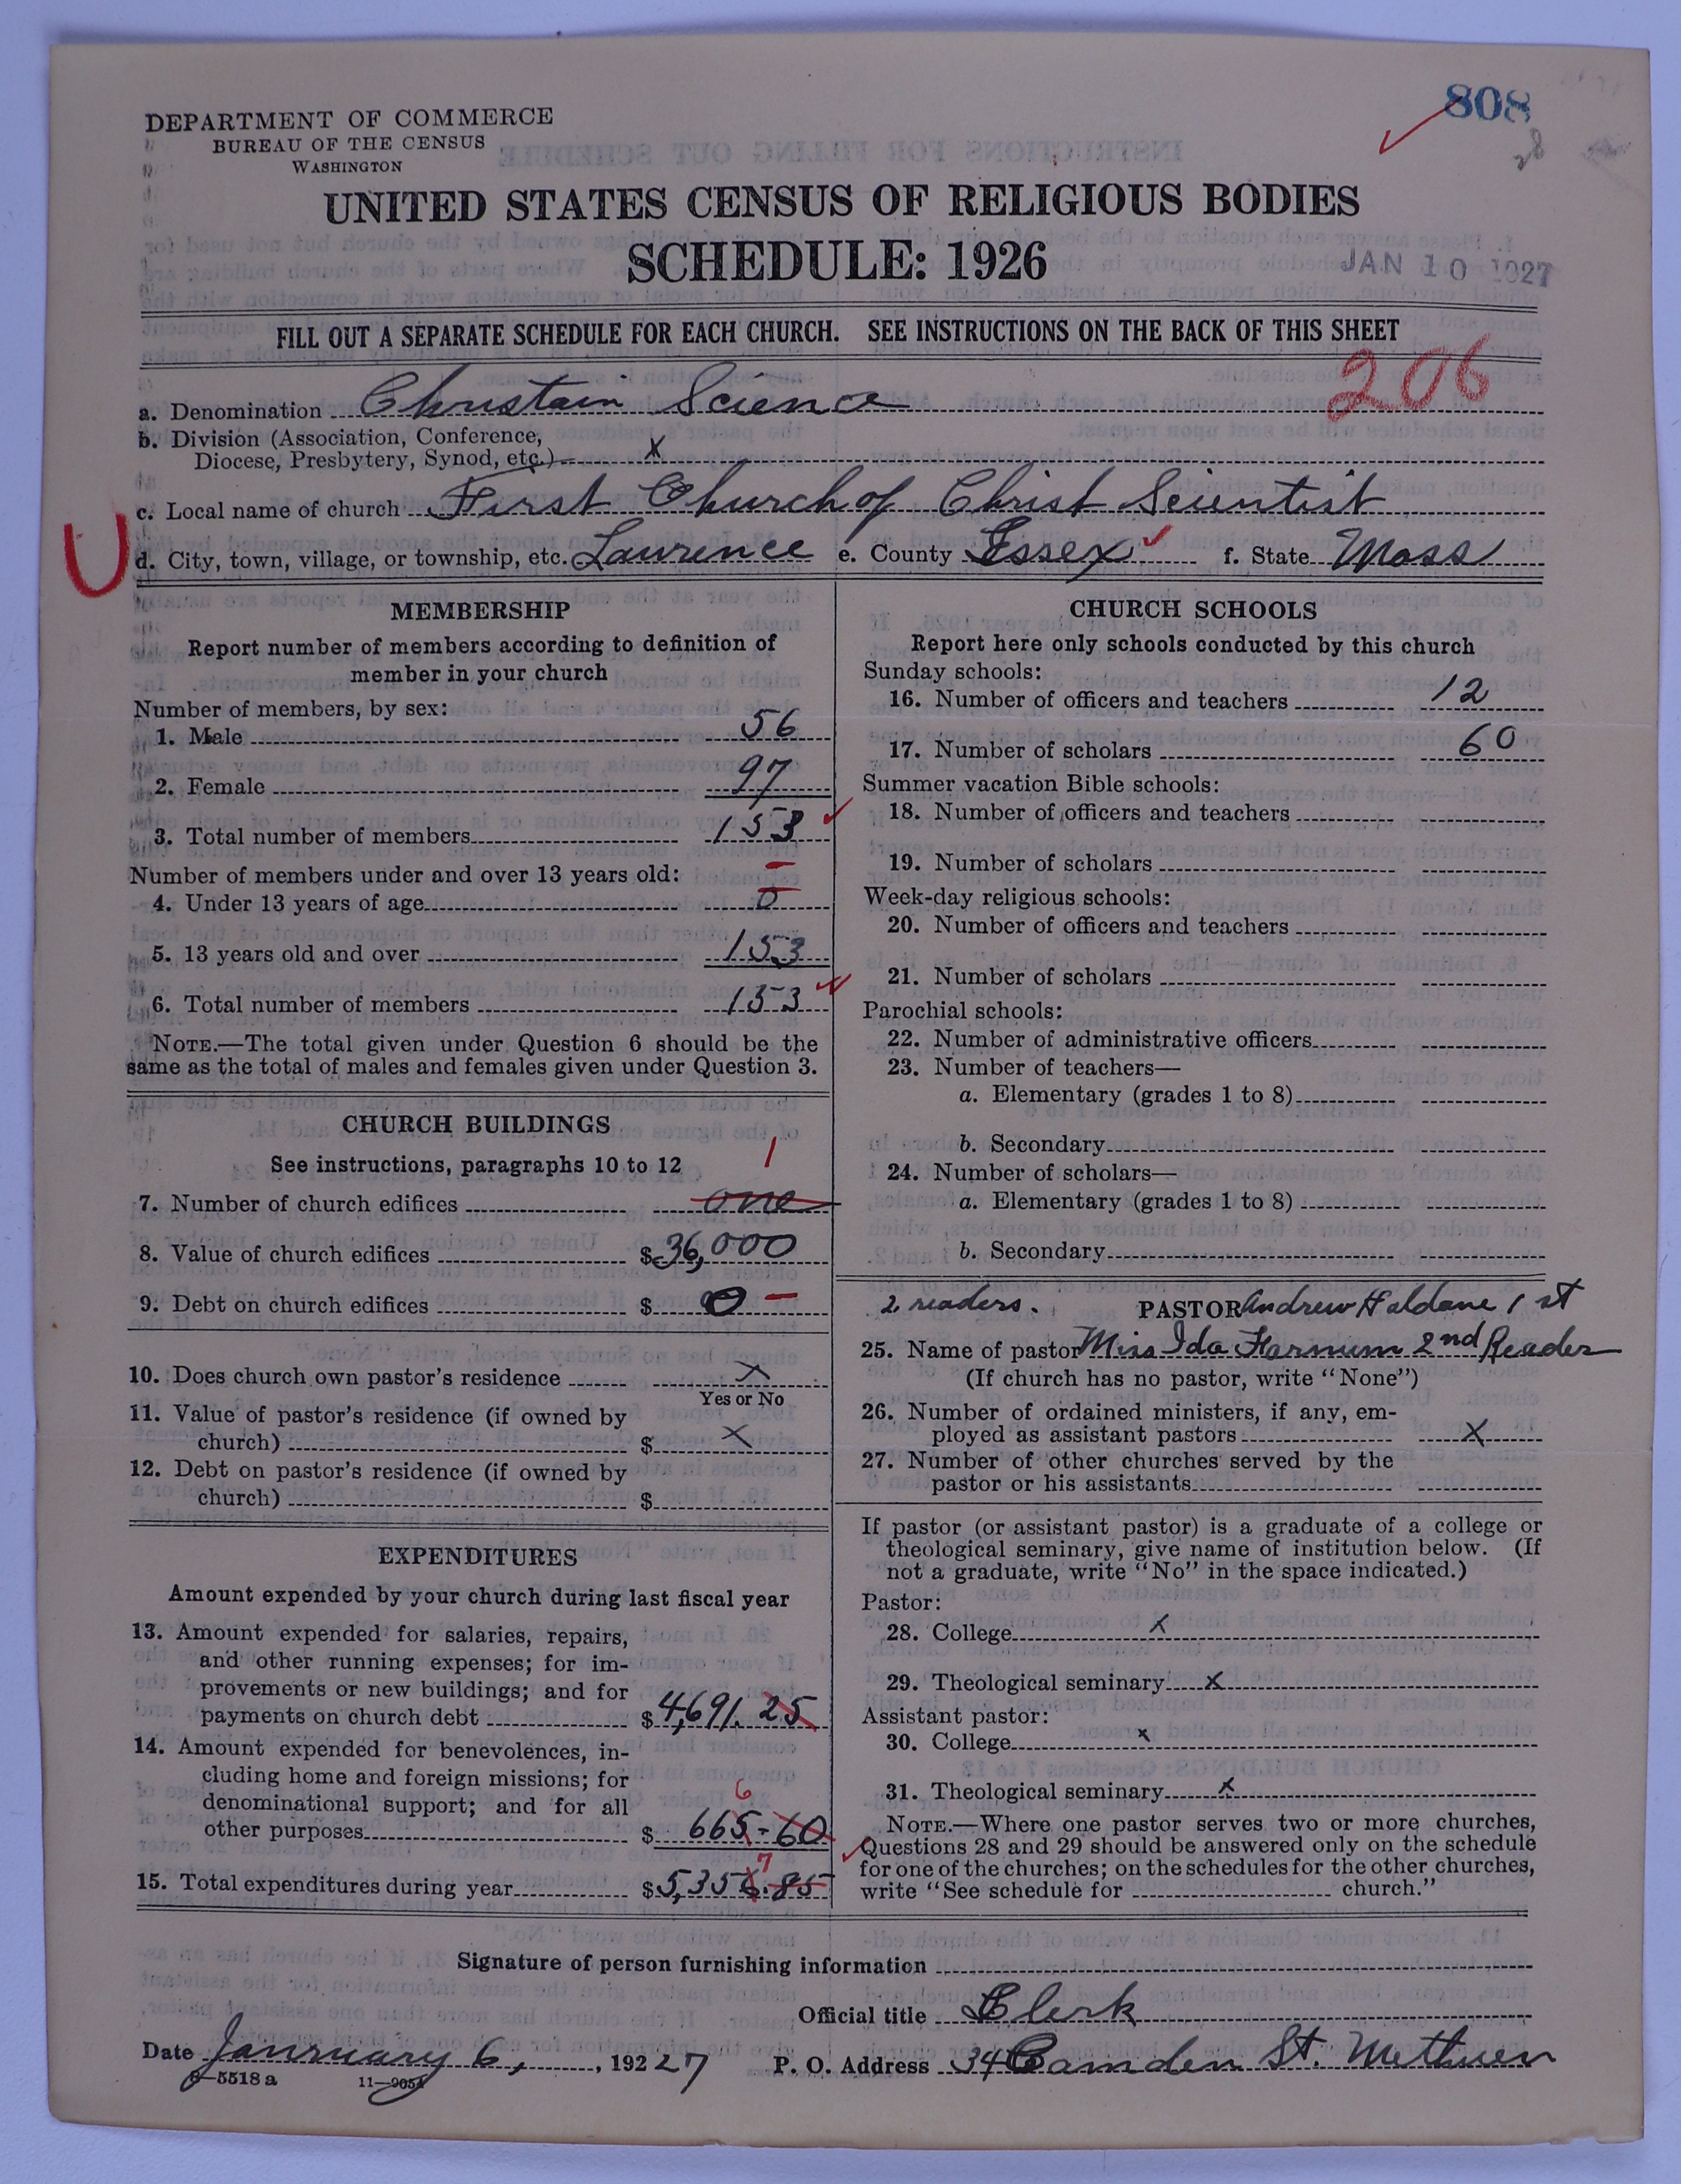 808
28
DEPARTMENT OF COMMERCE
BUREAU OF THE CENSUS
WASHINGTON
UNITED STATES CENSUS OF RELIGIOUS BODIES
SCHEDULE: 1926
JAN 10 1927
FILL OUT A SEPARATE SCHEDULE FOR EACH CHURCH. SEE INSTRUCTIONS ON THE BACK OF THIS SHEET
206
a. Denomination Christain Science
b. Division (Association, Conference,
Diocese, Presbytery, Synod, etc.) x
c. Local name of church First Church of Christ Scientist
U
d. City, town, village, or township, etc. Lawrence e. County Essex f. State Mass
MEMBERSHIP
Report number of members according to definition of
member in your church
Number of members, by sex:
1. Male 56
2. Female 97
3. Total number of members 153
Number of members under and over 13 years old:
4. Under 13 years of age 0
5. 13 years old and over 153
6. Total number of members 153
NOTE.—The total given under Question 6 should be the
same as the total of males and females given under Question 3.
CHURCH BUILDINGS
See instructions, paragraphs 10 to 12
1
7. Number of church edifices one
8. Value of church edifices $ 36,000
9. Debt on church edifices $ 0 —
10. Does church own pastor's residence x
Yes or No
11. Value of pastor's residence (if owned by
church) $ x
12. Debt on pastor's residence (if owned by
church) $
EXPENDITURES
Amount expended by your church during last fiscal year
13. Amount expended for salaries, repairs,
and other running expenses; for im-
provements or new buildings; and for
payments on church debt $ 4,691.25
14. Amount expended for benevolences, in-
cluding home and foreign missions; for
denominational support; and for all
6
other purposes $ 665-60
7
15. Total expenditures during year $ 5,356.85
CHURCH SCHOOLS
Report here only schools conducted by this church
Sunday schools:
16. Number of officers and teachers 12
17. Number of scholars 60
Summer vacation Bible schools:
18. Number of officers and teachers
19. Number of scholars
Week-day religious schools:
20. Number of officers and teachers
21. Number of scholars
Parochial schools:
22. Number of administrative officers
23. Number of teachers—
a. Elementary (grades 1 to 8)
b. Secondary
24. Number of scholars—
a. Elementary (grades 1 to 8)
b. Secondary
2 readers. PASTOR Andrew Haldane 1st
25. Name of pastor Miss Ida Farnum 2nd Reader
(If church has no pastor, write "None")
26. Number of ordained ministers, if any, em-
ployed as assistant pastors x
27. Number of other churches served by the
pastor or his assistants
If pastor (or assistant pastor) is a graduate of a college or
theological seminary, give name of institution below. (If
not a graduate, write "No" in the space indicated.)
Pastor:
28. College x
29. Theological seminary x
Assistant pastor:
30. College x
31. Theological seminary x
NOTE.—Where one pastor serves two or more churches,
Questions 28 and 29 should be answered only on the schedule
for one of the churches; on the schedules for the other churches,
write "See schedule for church."
Signature of person furnishing information
Official title Clerk
Date Janruary 6, , 192 27 P. O. Address 34 Camden St. Methuen
8—5518 a 11—9054